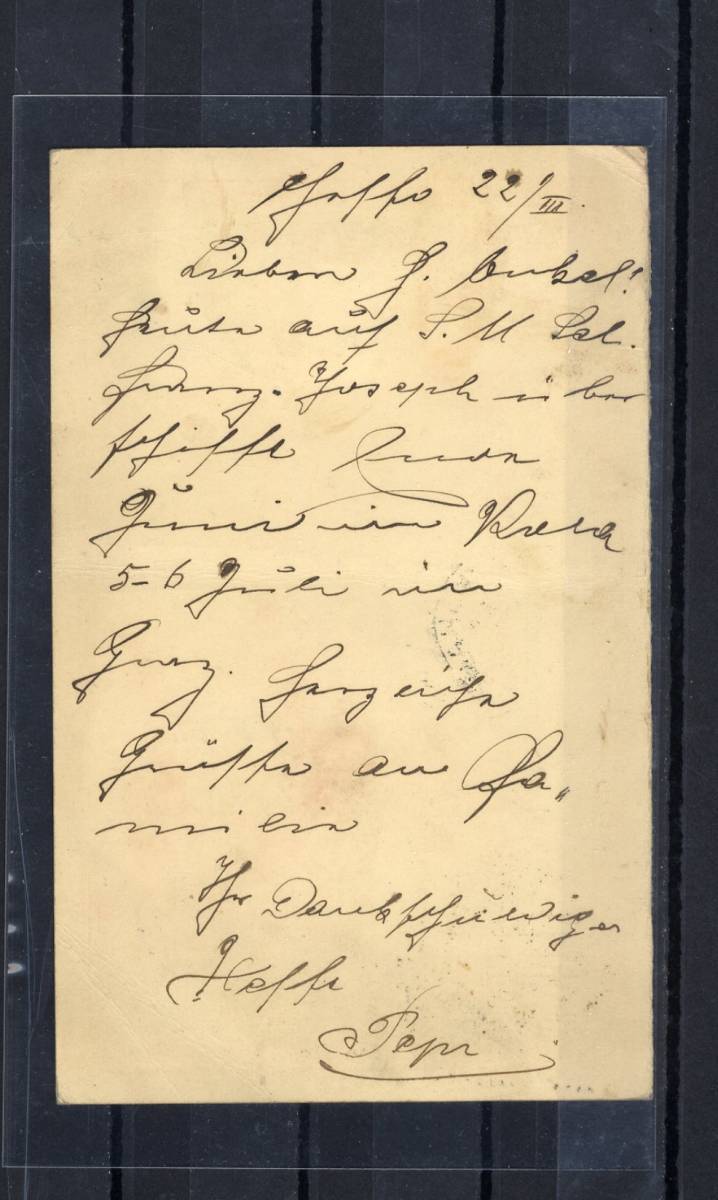 22/III.
Lieber H. Onkel!
Heute auf S. M. Sch.
Franz-Joseph über
schifft Ende
Juni in Pola
5-6 Juli in
Graz.
Grüsse an Fa„
milie
Ihr Dankschuldiger
Neffe
Pepi